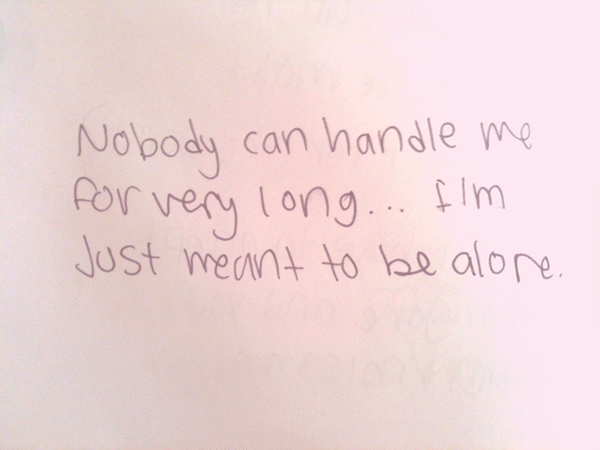 Nobody can handle me
for very long... I'm
Just meant to be alone.